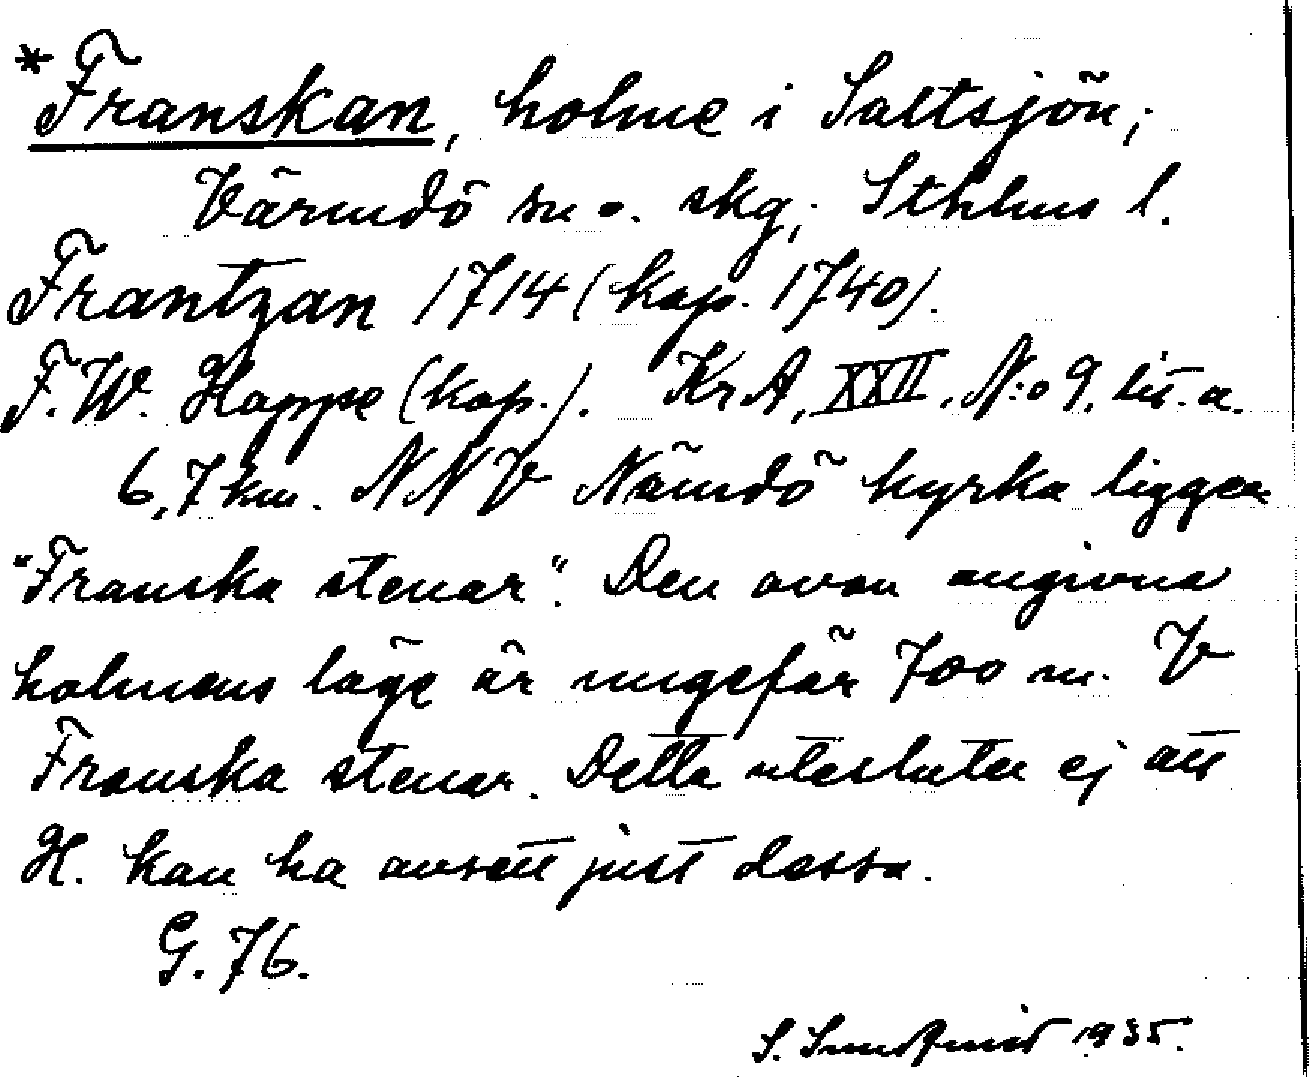 *Franskan, holme i Saltsjön;
Värmdö sn o. skg; Sthlms l.
Frantzan 1714 (kop. 1740).
F.W. Happe (kop.). KrA, XXII, N:o 9, lit. a.
6,7 km. NNV Nämdö kyrka ligger
"Franska stenar". Den ovan angivna
holmens läge är ungefär 700 m. V
Franska stenar. Detta utesluter ej att
H. kan ha avsett just dessa.
G. 76.
S. 1935.